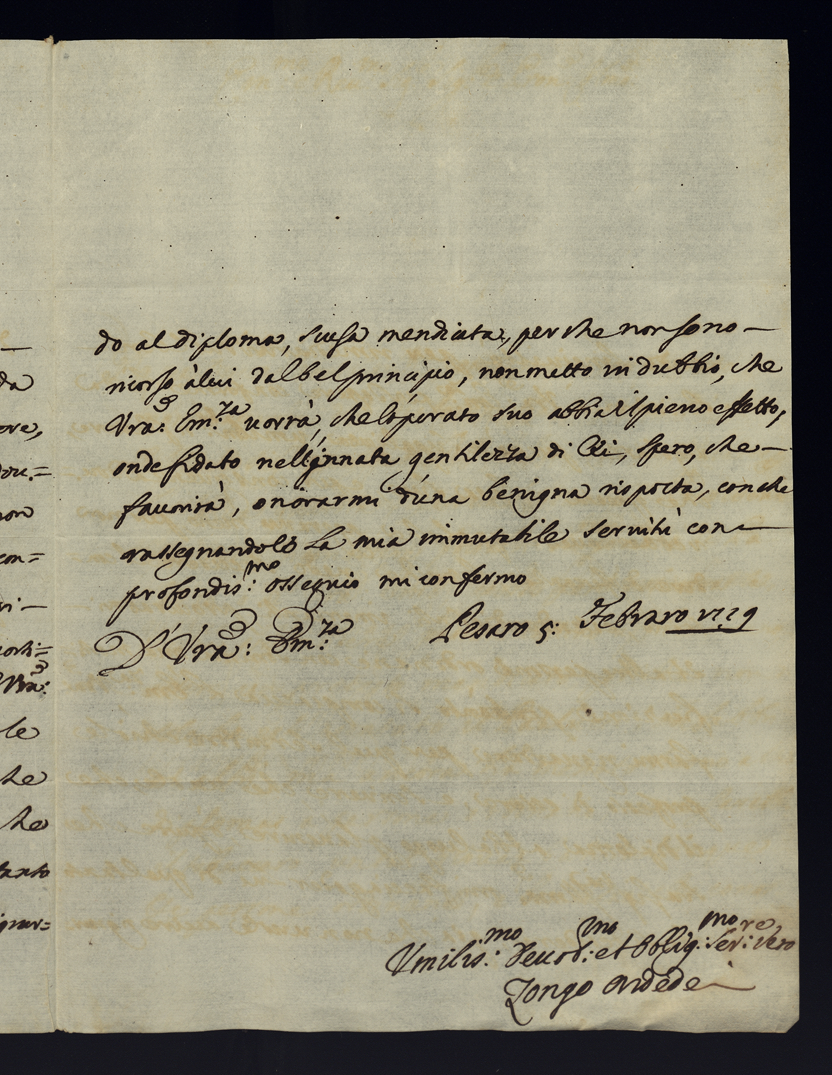 da
ove,
dov.=
non
con=
ri—
corti=
Vra:
le
he
he
tanto
ignar=
do al diploma, scusa mendicata, perche non sono—
ricorso à lui dal bel principio, non metto in dubbio, che
Vra: Em:za vorrà, che l'operato suo abbia il pieno effetto,
onde fidato nell'innata gentilezza di Lei, spero, che—
favorirà, onorarmi d'una benigna risposta, con che
rassegnandole la mia immutabile servitù con—
profondis:mo ossequio mi confermo
D' Vra: Em:za Pesaro 5: Febraro 1729
Umilis:mo Devot:mo et Obblig:mo Ser:re vero
Zongo Ondedei